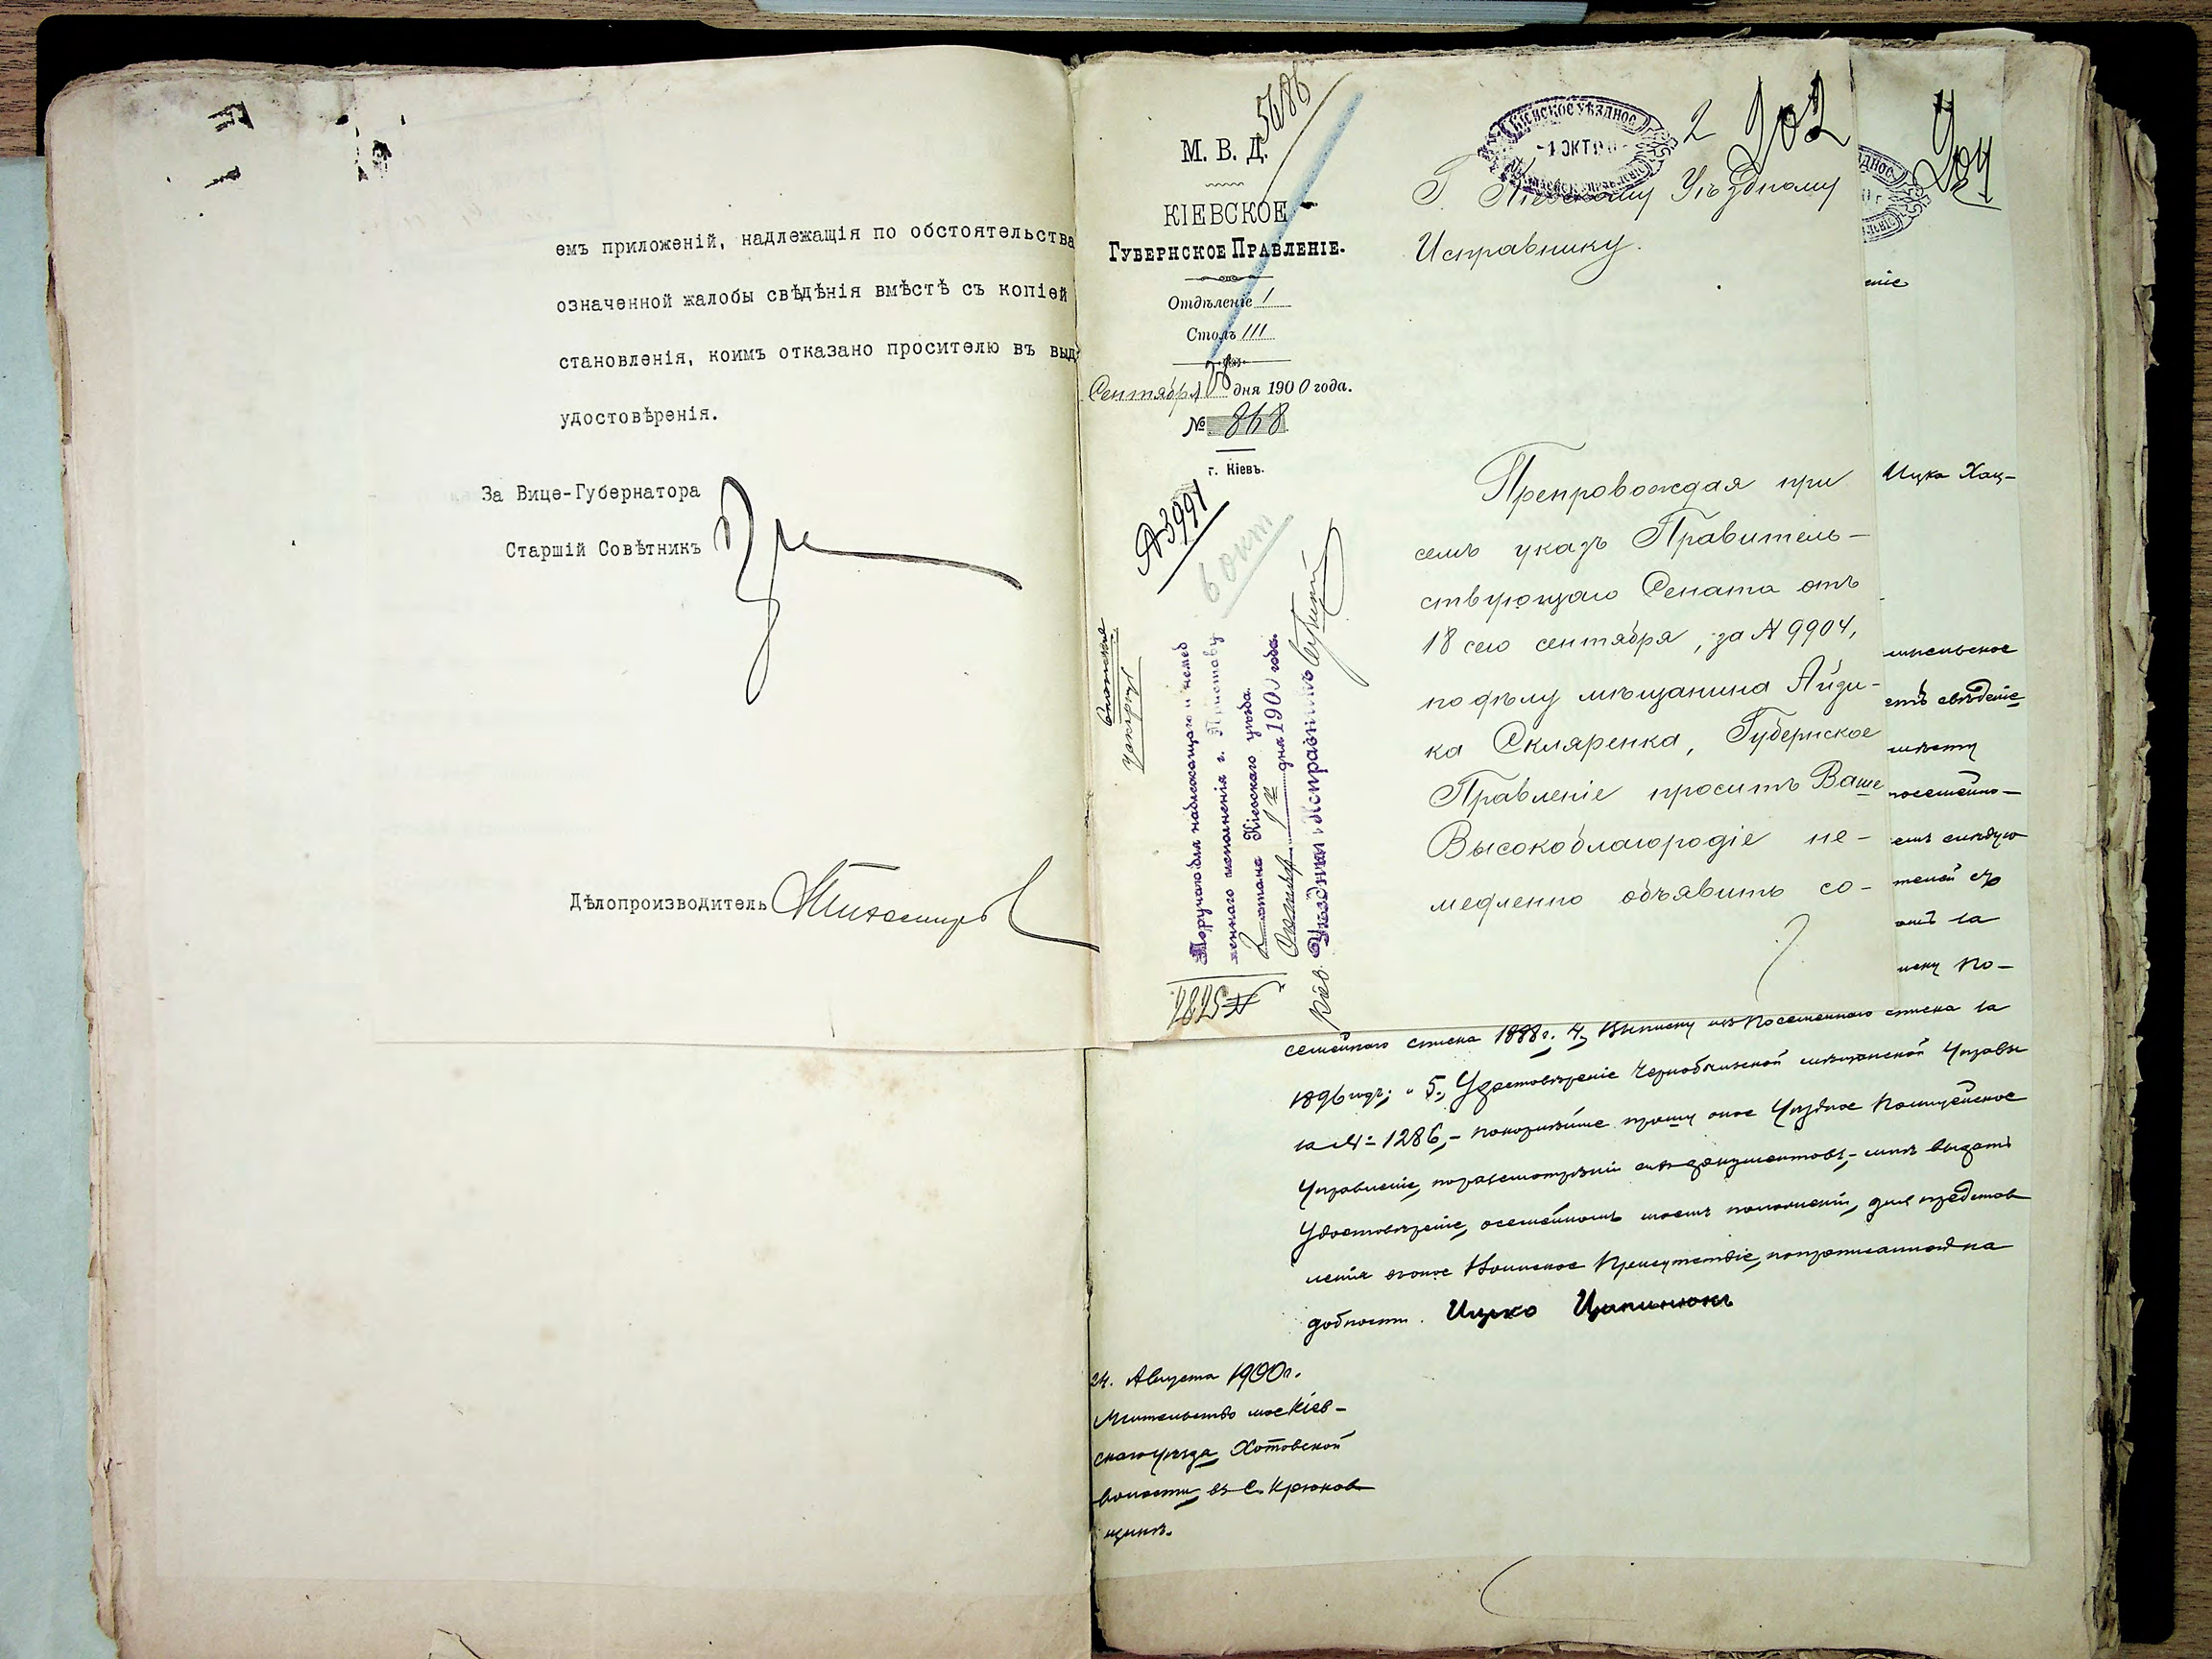 емъ приложеній, надлежащія по обстоятельства
означенной жалобы свѣдѣнія вмѣстѣ съ копіей
становленія, коимъ отказано просителю въ выд
удостовѣренія.
За Вице-Губернатора
Старшій Совѣтникъ
Дѣлопроизводитель
М. В. Д.
5686
КІЕВСКОЕ
ГУБЕРНСКОЕ ПРАВЛЕНІЕ.
Отдѣленіе 1
Столъ III
Сентября 28 дня 1900 года.
№ 868
г. Кіевъ.
№3991
6 окт
Поручаю для надлежащаго и немед
леннаго исполненія г. Приставу
2 стана Кіевскаго уѣзда.
Октября 1 дня 1900 года.
Уѣздный Исправникъ
№ 5784
КІЕВСКОЕ УѢЗДНОЕ
-1 ОКТ
2 202
Г. Кіевскому Уѣздному
Исправнику.
Препровождая при
семъ указъ Правитель-
ствующаго Сената отъ
18 сего сентября, за № 9904,
по дѣлу мѣщанина Айзи-
ка Скляренка, Губернское
Правленіе проситъ Ваше
Высокоблагородіе не-
медленно объявить со-
204
еніе
Ицка Хац-
етъ свѣдѣніе
посемейно-
мѣсту
ему по-
семейнаго списка 1888 г. 4, Выписку изъ посемейнаго списка за
1896 годъ; и 5, Удостовѣреніе Чернобыльской мѣщанской Управы
за №= 1286,- покорнѣйше прошу оное Уѣздное Полицейское
Управленіе, по разсмотрѣніи сихъ документовъ,- мнѣ выдать
Удостовѣреніе, о семейномъ моемъ положеніи, для представ
ленія въ оное Воинское Присутствіе, по прописанной на
добности. Ицко Ципинюкъ
24. Августа 1900 г.
Жительство мое Кіев-
скаго уѣзда Хотовской
волости, въ С. Крюков
щинѣ.